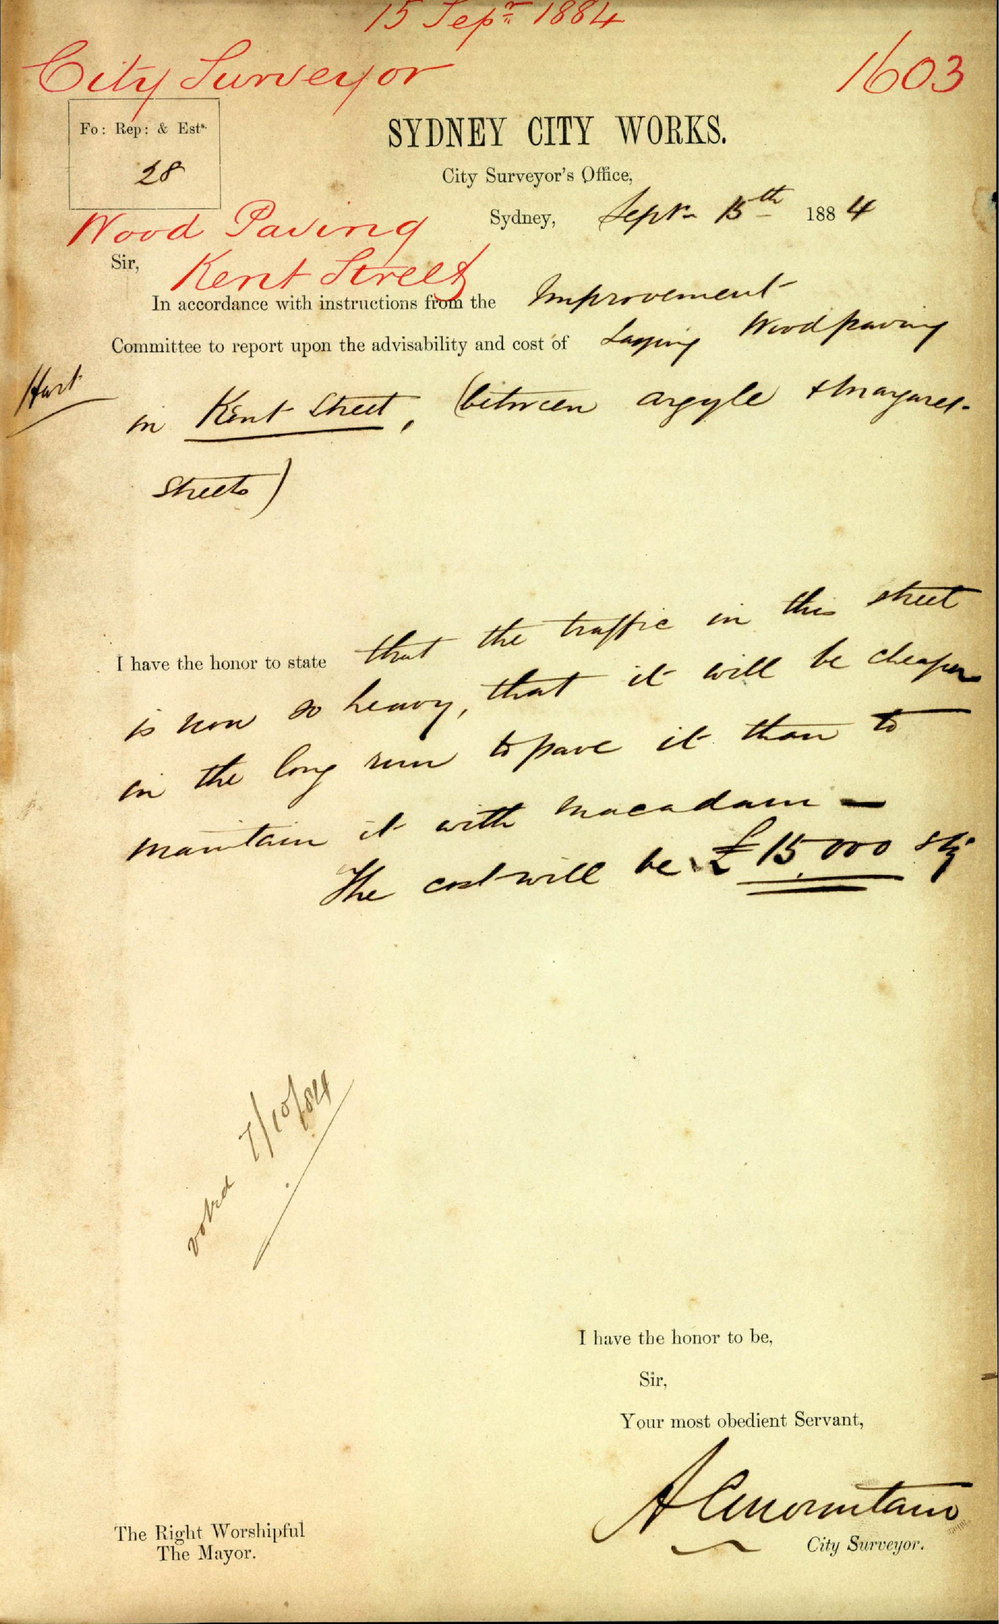 15 Sepr 1884
City Surveyor
1603
Fo: Rep: & Ests.
28
SYDNEY CITY WORKS.
City Surveyor's Office,
Sydney, Septr 15th 1884
Wood Paving
Kent Street
Sir,
In accordance with instructions from the Improvement
Committee to report upon the advisability and cost of Laying Woodpaving
Hart
in Kent Street, (between Argyle & Margaret
Streets)
I have the honor to state that the traffic in this street
is now so heavy, that it will be cheaper
in the long run to pave it than to
maintain it with macadam —
The cost will be £15,000 stg
voted 7/10/84
I have the honor to be,
Sir,
Your most obedient Servant,
City Surveyor.
The Right Worshipful
The Mayor.